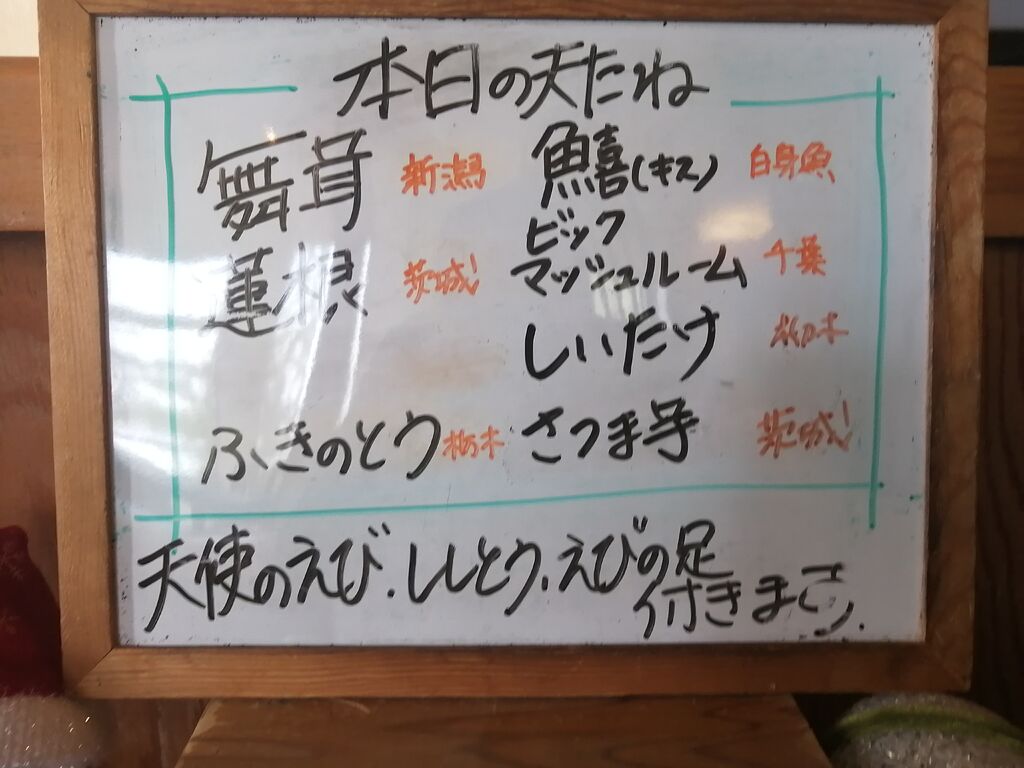 本日の天たね
舞茸 新潟
鱚(キス) 白身魚
蓮根 茨城!
ビック
マッシュルーム 千葉
しいたけ 栃木
ふきのとう 栃木
さつま芋 茨城!
天使のえび.ししとう.えびの足
付きます。